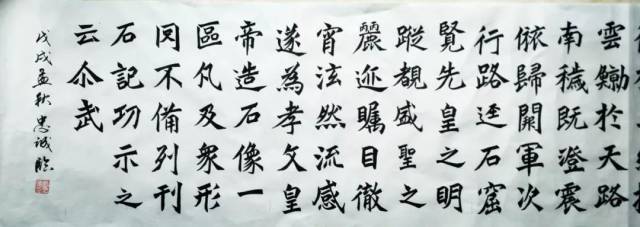 雲鯨於天路
南穢既澄震
依歸闕軍次
行路逕石窟
覽先皇之明
蹤覩盛聖之
麗迹矚目徹
霄泫然流感
遂為孝文皇
帝造石像一
區凡及衆形
罔不備列刊
石記功示之
云尒武
戊戌孟秋忠诚臨